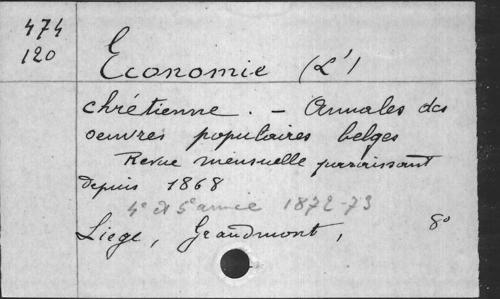 474
120
Economie (L')
chrétienne. - Annales des
oeuvres populaires belges
Revue mensuelle paraissant
depuis 1868
4e et 5e année 1872-73
Liege, Grandmont, 8o